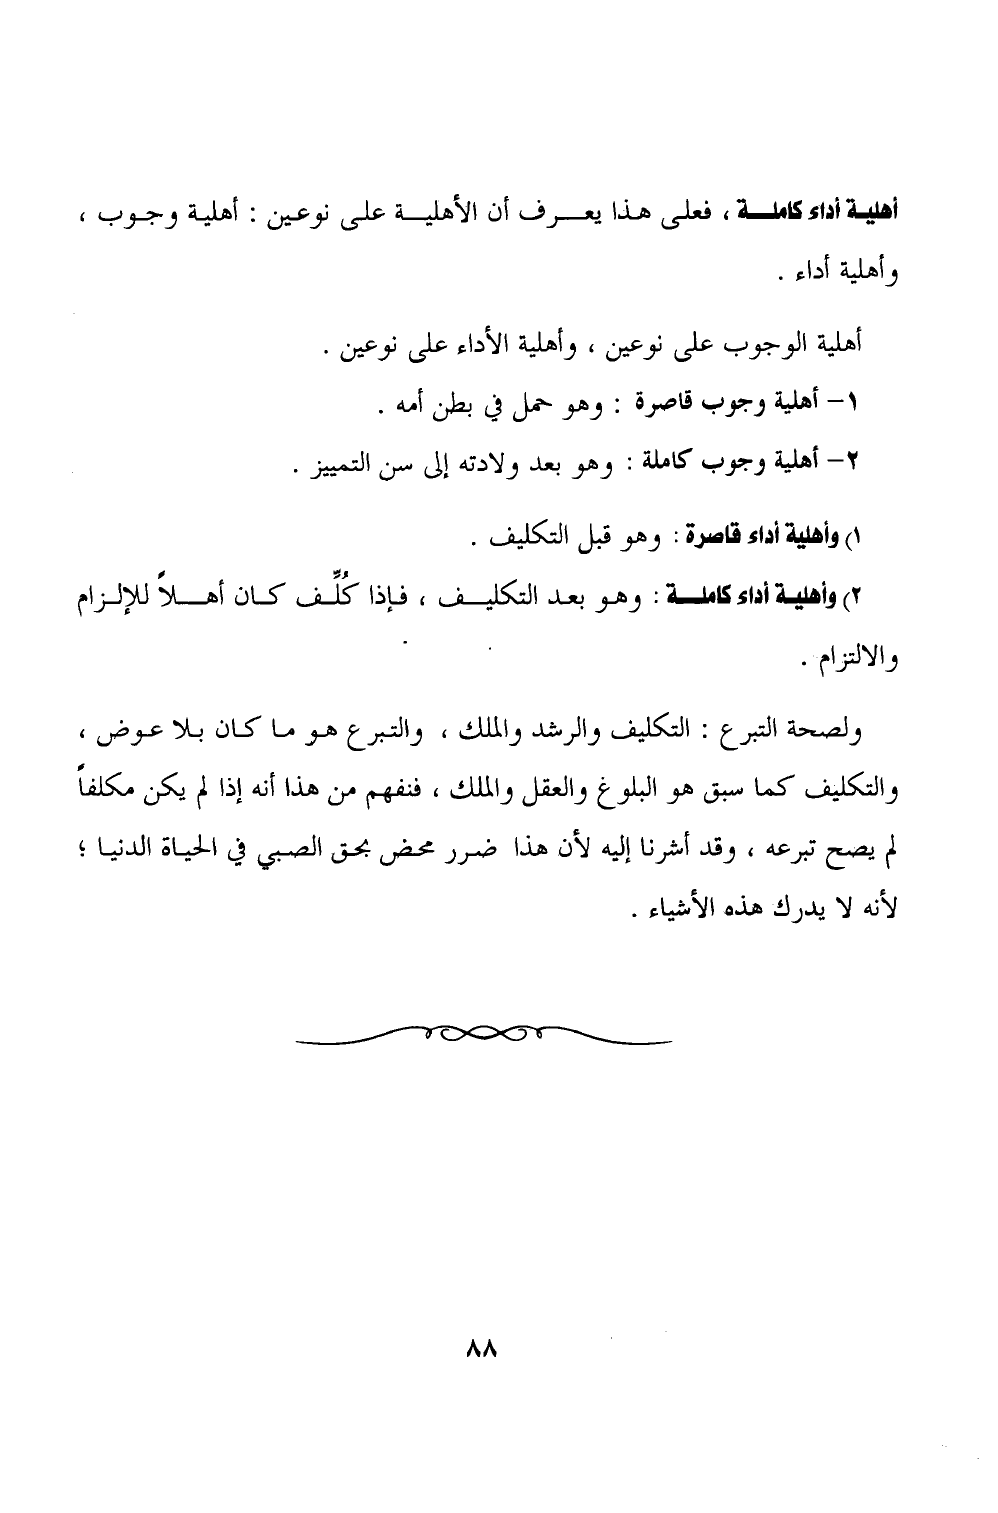 أهلية أداء كاملة ، فعلى هذا يعرف أن الأهلية على نوعين : أهلية وجوب ،
وأهلية أداء .
أهلية الوجوب على نوعين ، وأهلية الأداء على نوعين .
١– أهلية وجوب قاصرة : وهو حمل في بطن أمه .
٢– أهلية وجوب كاملة : وهو بعد ولادته إلى سن التمييز .
١) وأهلية أداء قاصرة : وهو قبل التكليف .
٢) وأهلية أداء كاملة : وهو بعد التكليف ، فإذا كُلِّف كان أهلاً للإلزام
والالتزام .
ولصحة التبرع : التكليف والرشد والملك ، والتبرع هو ما كان بلا عوض ،
والتكليف كما سبق هو البلوغ والعقل والملك ، فنفهم من هذا أنه إذا لم يكن مكلفاً
لم يصح تبرعه ، وقد أشرنا إليه لأن هذا ضرر محض بحق الصبي في الحياة الدنيا ؛
لأنه لا يدرك هذه الأشياء .
٨٨